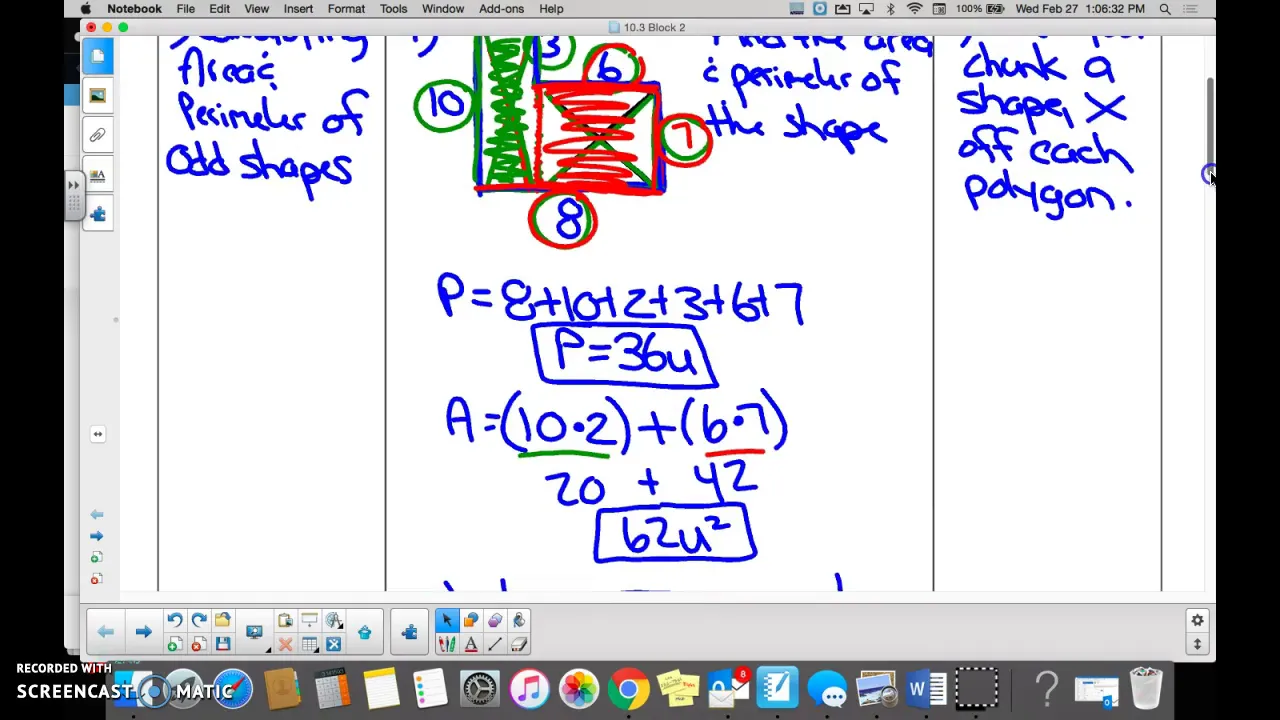 Notebook File Edit View Insert Format Tools Window Add-ons Help 100% Wed Feb 27 1:06:32 PM
10.3 Block 2
Area &
Perimeter of
Odd shapes
1)
3
6
10
7
8
Find the area
& perimeter of
the shape
chunk a
shape, X
off each
polygon.
P=8+10+2+3+6+7
P=36u
A=(10•2)+(6•7)
20 + 42
62u²
A
8
W
?
RECORDED WITH
SCREENCAST MATIC